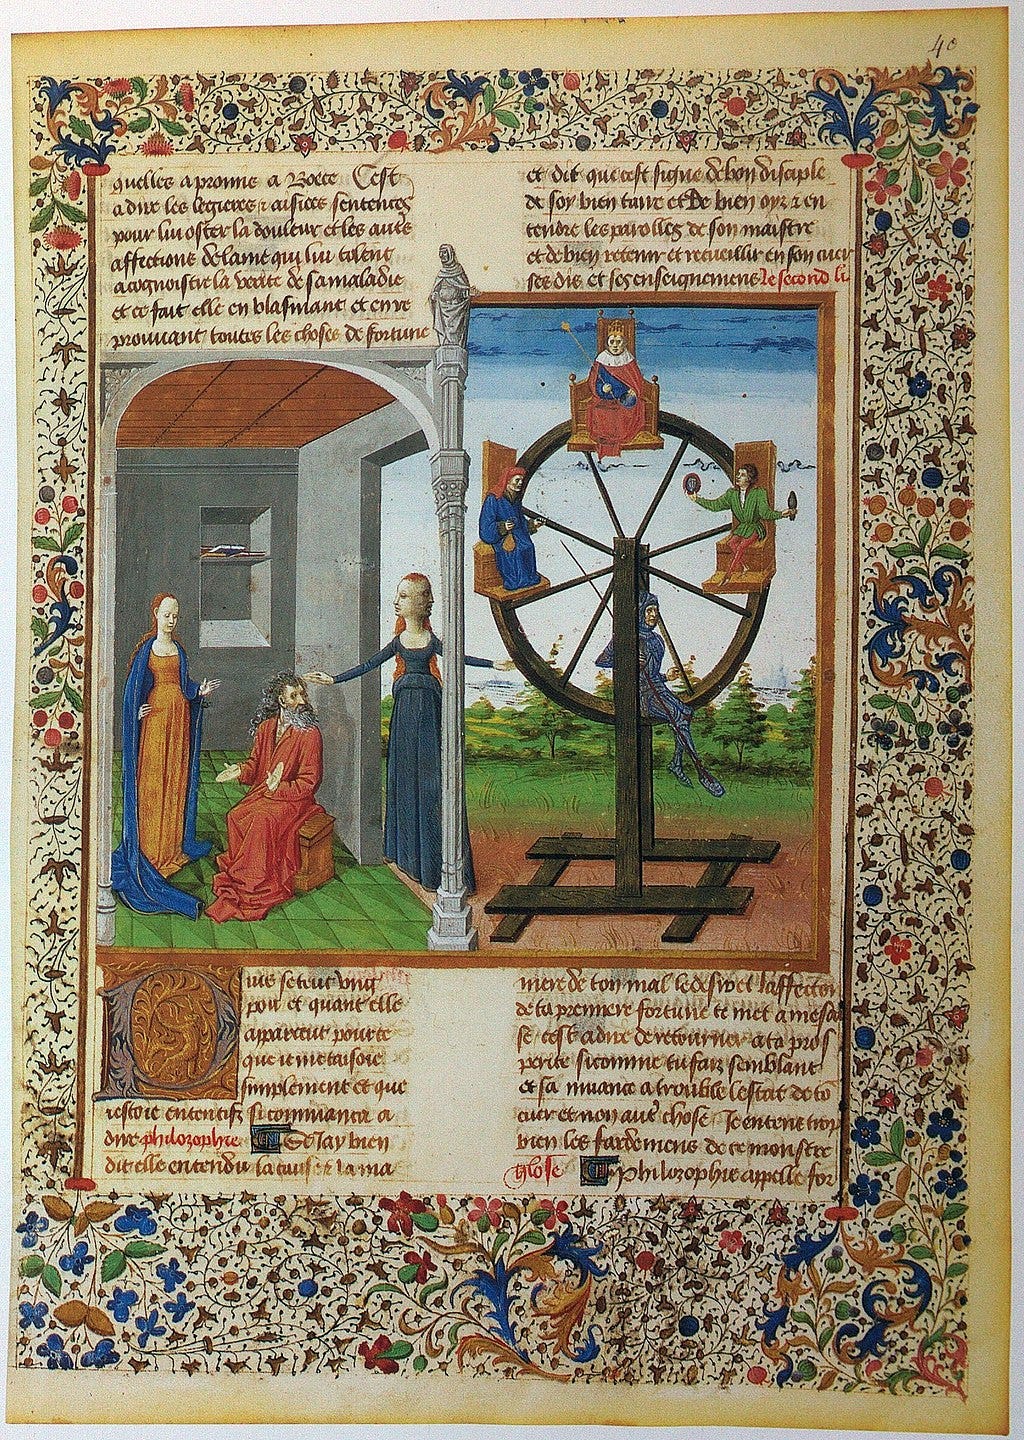 40
quelles a promie a Boece Cest
a dire les legieres & aisiees sentences
pour lui oster la douleur et les aultres
affections de lame qui lui tolent
a cognoistre la verite de sa maladie
et ce fait elle en blasmant et en re
prouvant toutes les choses de fortune
et dit que cest signe de bon disciple
de soy bien taire et de bien oyr & en
tendre les parolles de son maistre
et de bien retenir et recueillir en son cuer
ses dis et ses enseignemens le second li
uis se teut ung
pou et quant elle
apparceut pource
que ie me taisoie
simplement et que
iestoie ententif si commanca a
dire philozophie Se Jay bien
dit elle entendu la cause & la ma
niere de ton mal le desir et laffection
de ta premiere fortune te met a mesai
se cest a dire de retourner a ta pros
perite si comme tu fais semblant
et sa muance a trouble lestat de to
cuer et non autre chose Je entens trop
bien les fardemens de ce monstre
Glose Philozophie appelle for